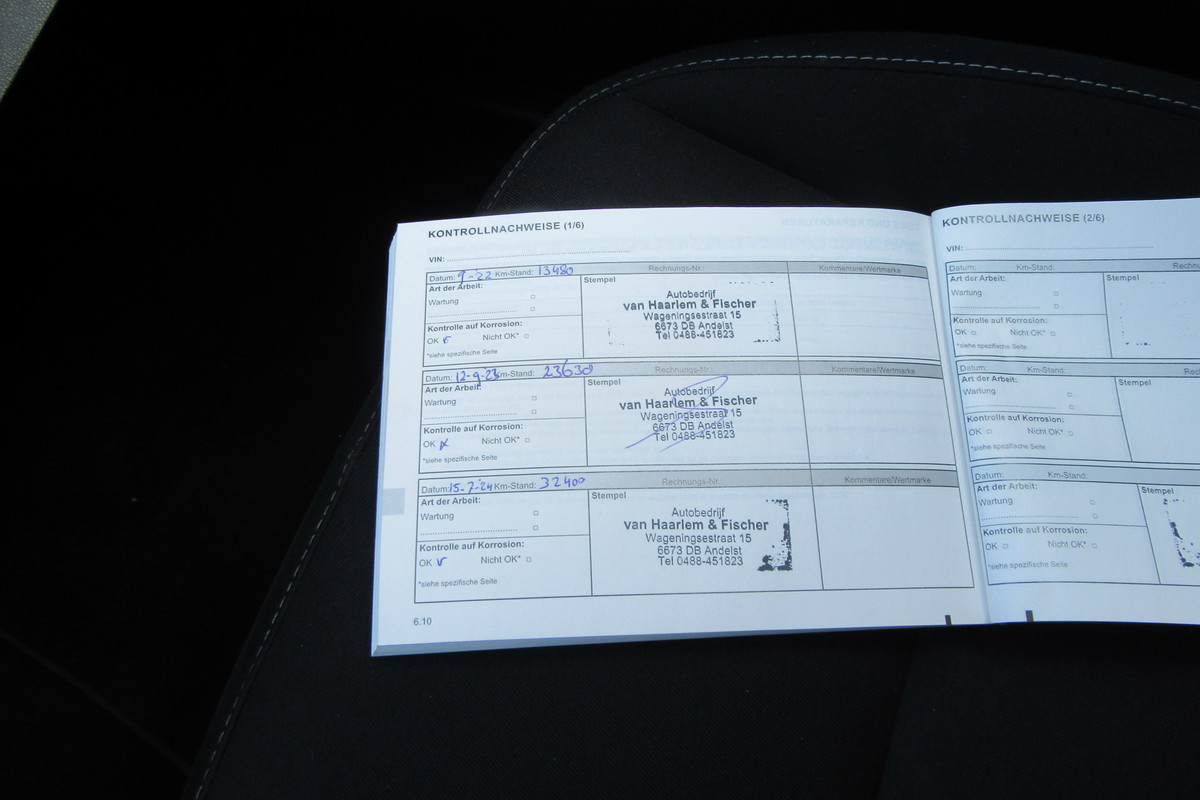 KONTROLLNACHWEISE (1/6)
VIN:
Datum: 9-22 Km-Stand: 13480 Rechnungs-Nr.: Kommentare/Wertmarke
Art der Arbeit:
Wartung
Kontrolle auf Korrosion:
OK Nicht OK*
*siehe spezifische Seite
Stempel
Autobedrijf
van Haarlem & Fischer
Wageningsestraat 15
6673 DB Andelst
Tel 0488-451823
Datum: 12-9-23 Km-Stand: 23630 Rechnungs-Nr.: Kommentare/Wertmarke
Art der Arbeit:
Wartung
Kontrolle auf Korrosion:
OK Nicht OK*
*siehe spezifische Seite
Stempel
Autobedrijf
van Haarlem & Fischer
Wageningsestraat 15
6673 DB Andelst
Tel 0488-451823
Datum: 15-7-24 Km-Stand: 32400 Rechnungs-Nr.: Kommentare/Wertmarke
Art der Arbeit:
Wartung
Kontrolle auf Korrosion:
OK Nicht OK*
*siehe spezifische Seite
Stempel
Autobedrijf
van Haarlem & Fischer
Wageningsestraat 15
6673 DB Andelst
Tel 0488-451823
6.10
KONTROLLNACHWEISE (2/6)
VIN:
Datum: Km-Stand:
Art der Arbeit:
Wartung
Kontrolle auf Korrosion:
OK Nicht OK*
*siehe spezifische Seite
Stempel
Datum: Km-Stand:
Art der Arbeit:
Wartung
Kontrolle auf Korrosion:
OK Nicht OK*
*siehe spezifische Seite
Stempel
Datum: Km-Stand:
Art der Arbeit:
Wartung
Kontrolle auf Korrosion:
OK Nicht OK*
*siehe spezifische Seite
Stempel